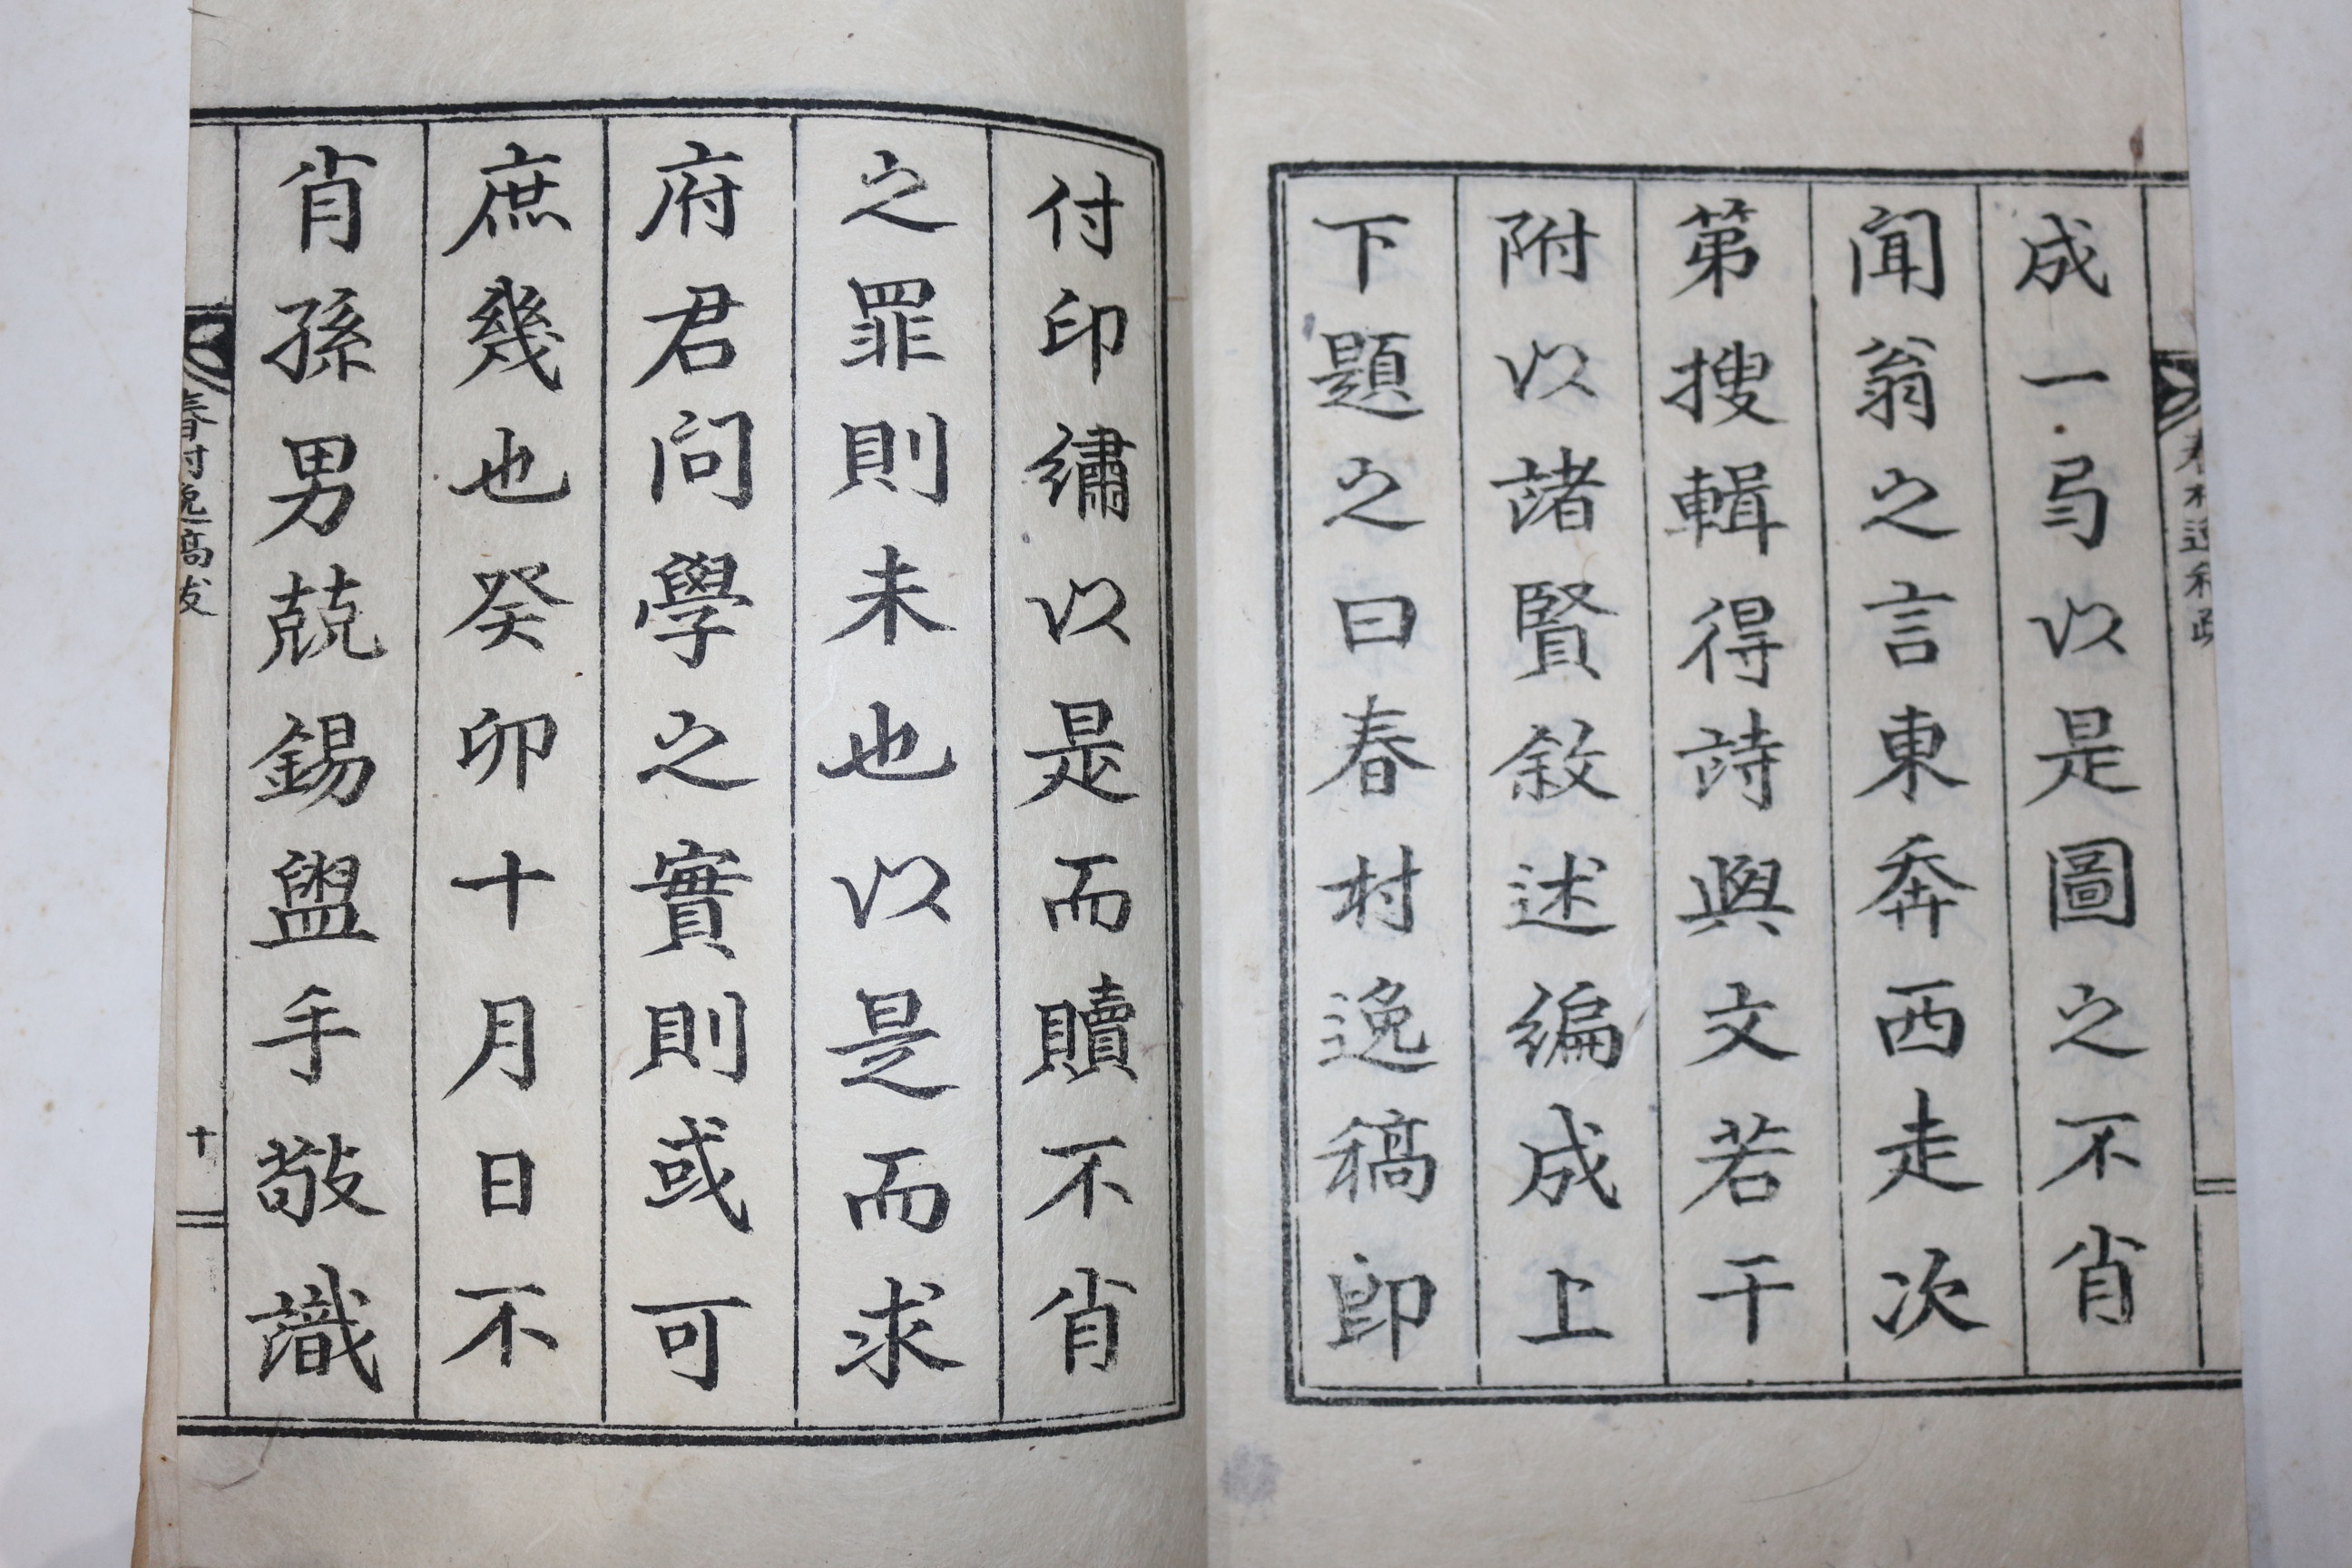 成一弓以是圖之不肖
聞翁之言東奔西走次
第搜輯得詩與文若干
附以諸賢敘述編成上
下題之曰春村逸稿卽
付印繡以是而贖不肖
之罪則未也以是而求
府君問學之實則或可
庶幾也癸卯十月日不
肖孫男兢錫盥手敬識
春村逸稿跋
春村逸稿跋
十